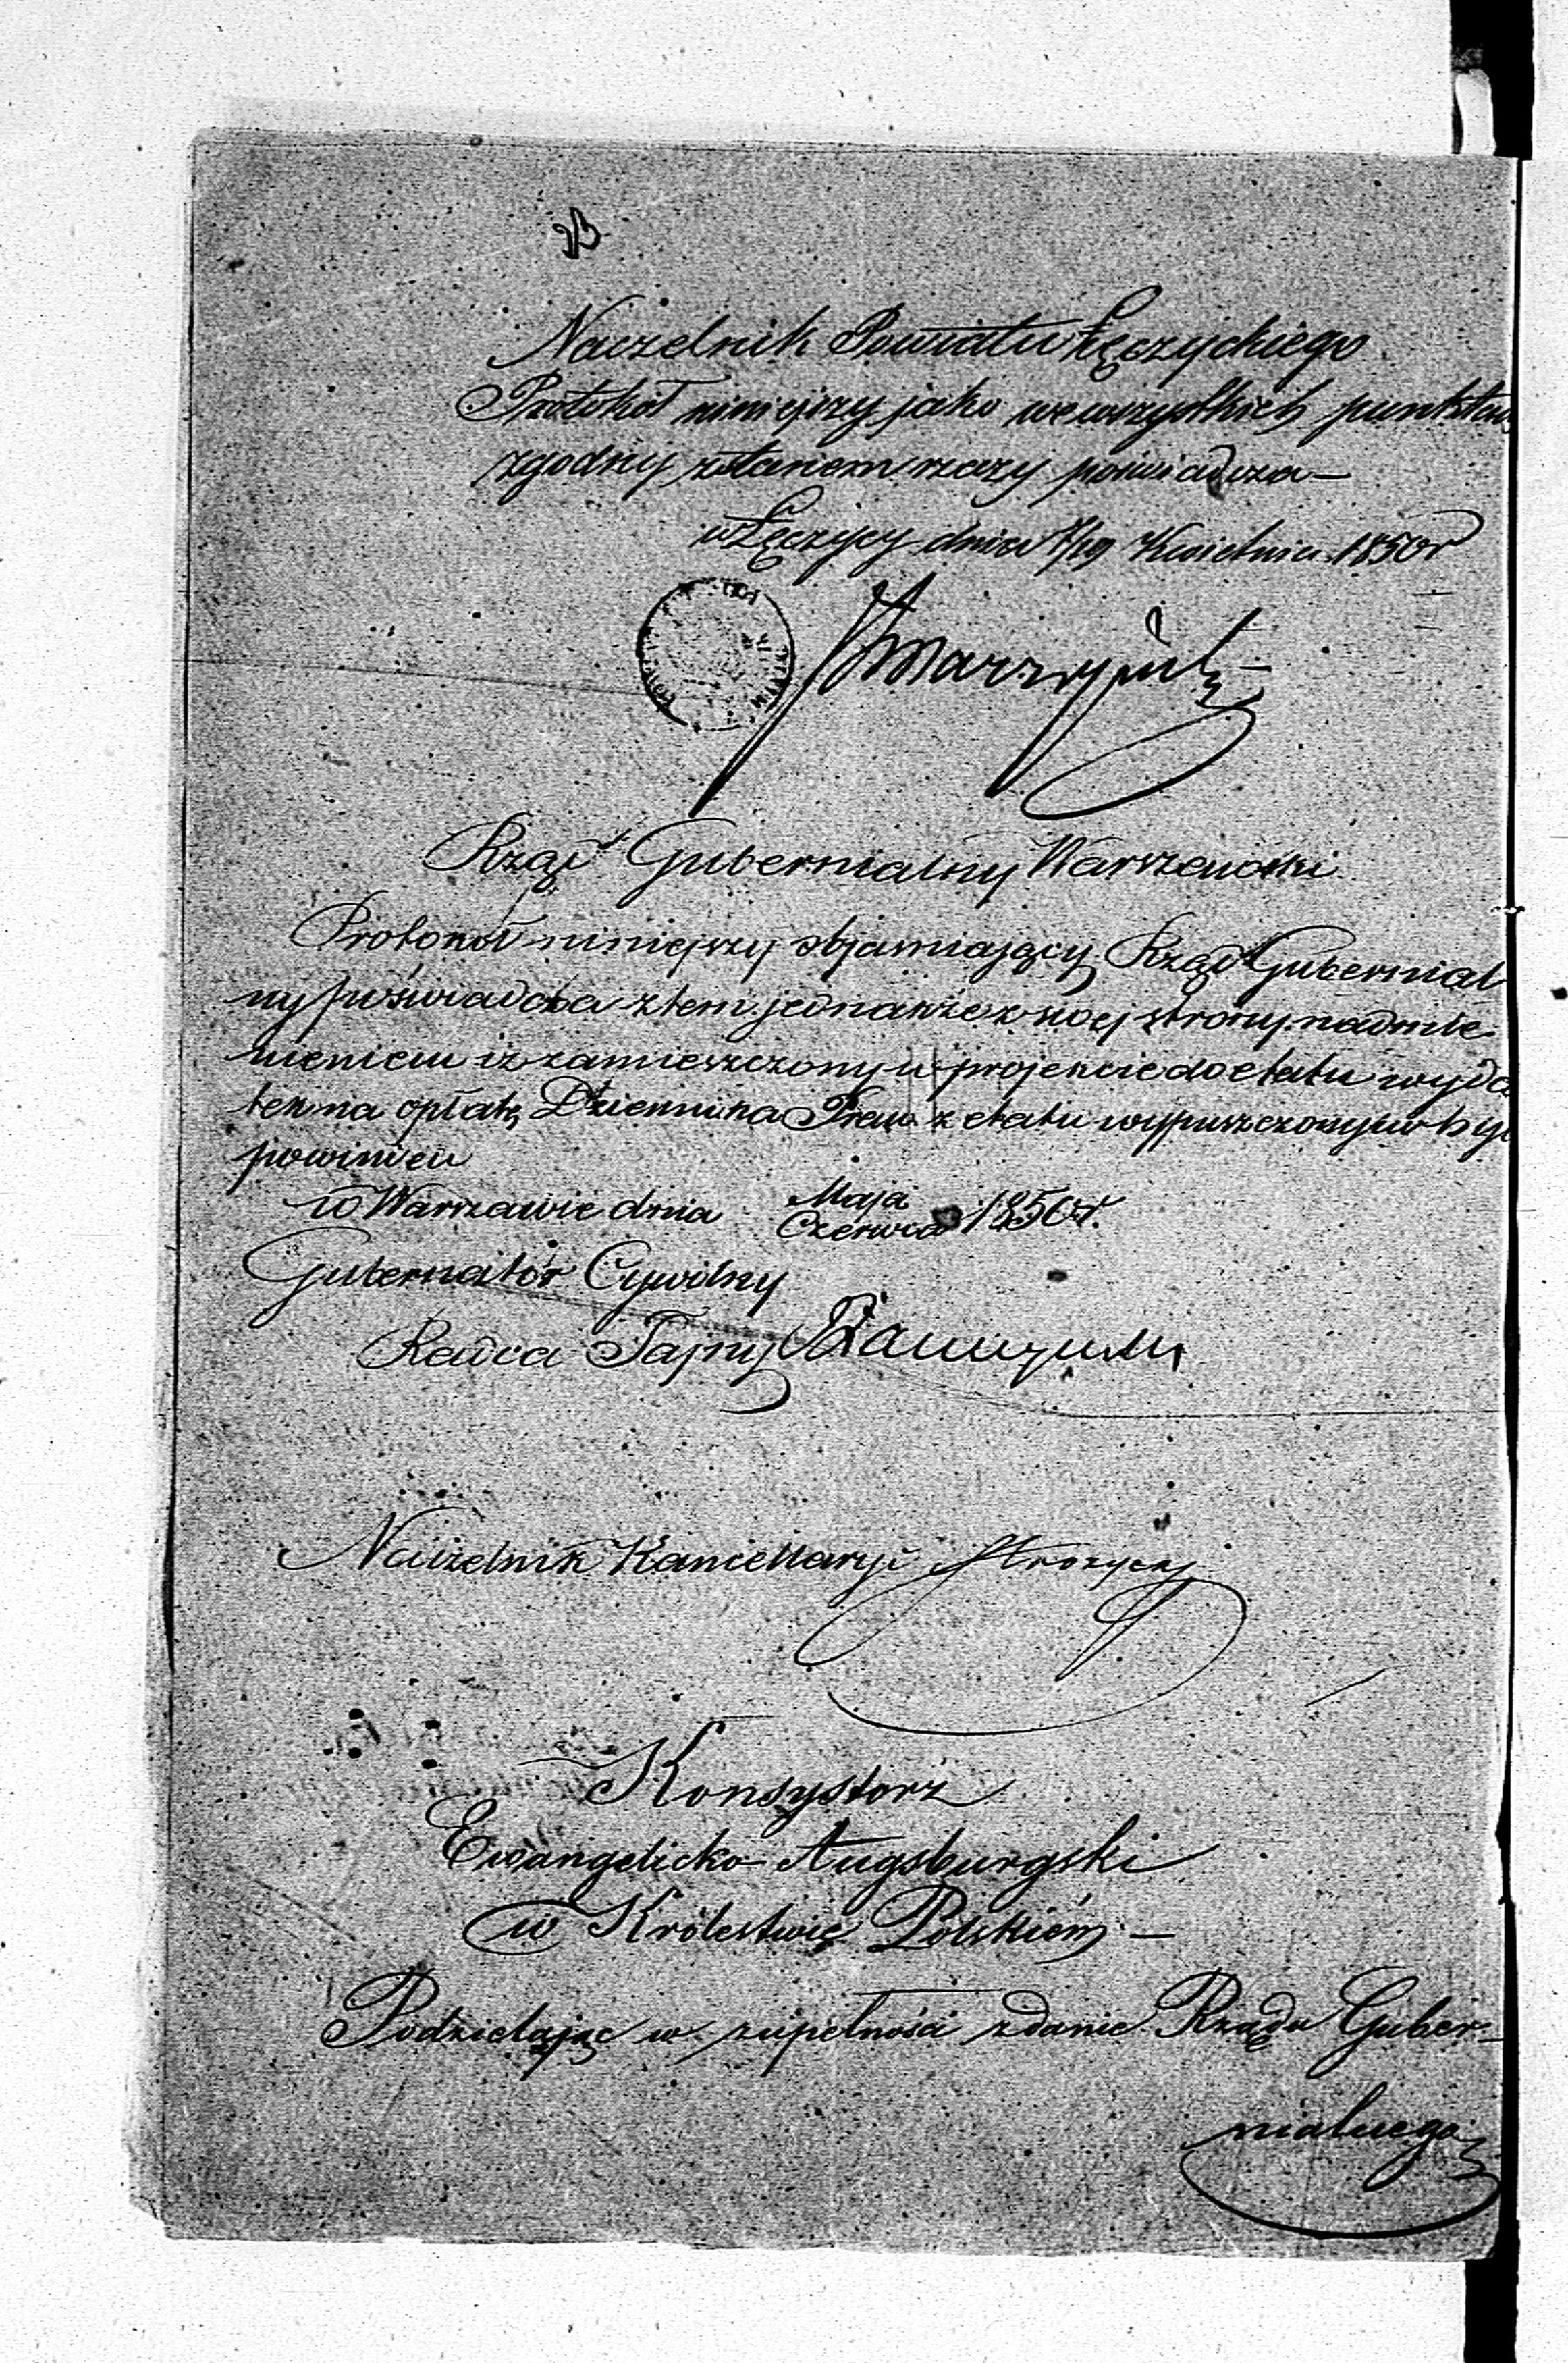 Naczelnik Powiatu Łęczyckiego
Protokół niniejszy jako we wszystkich punktach
zgodny z stanem rzeczy poświadcza —
w Łęczycy dnia 7/19 Kwietnia 1850 r
Rząd Gubernialny Warszawski
Protokół niniejszy objaśniający Rząd Gubernial
ny poświadcza z tem jednakże z swej strony nadmie
nieniem iż zamieszczony w projekcie do etatu wyda
tek na opłatę Dziennika Praw z etatu wypuszczonym być
powinien
w Warszawie dnia Maja
Czerwca 1850 r.
Gubernator Cywilny
Radca Tajny
Naczelnik Kancellaryi
Konsystorz
Ewangelicko Augsburgski
w Królestwie Polskiém —
Podzielając w zupełności zdanie Rządu Guber-
nialnego